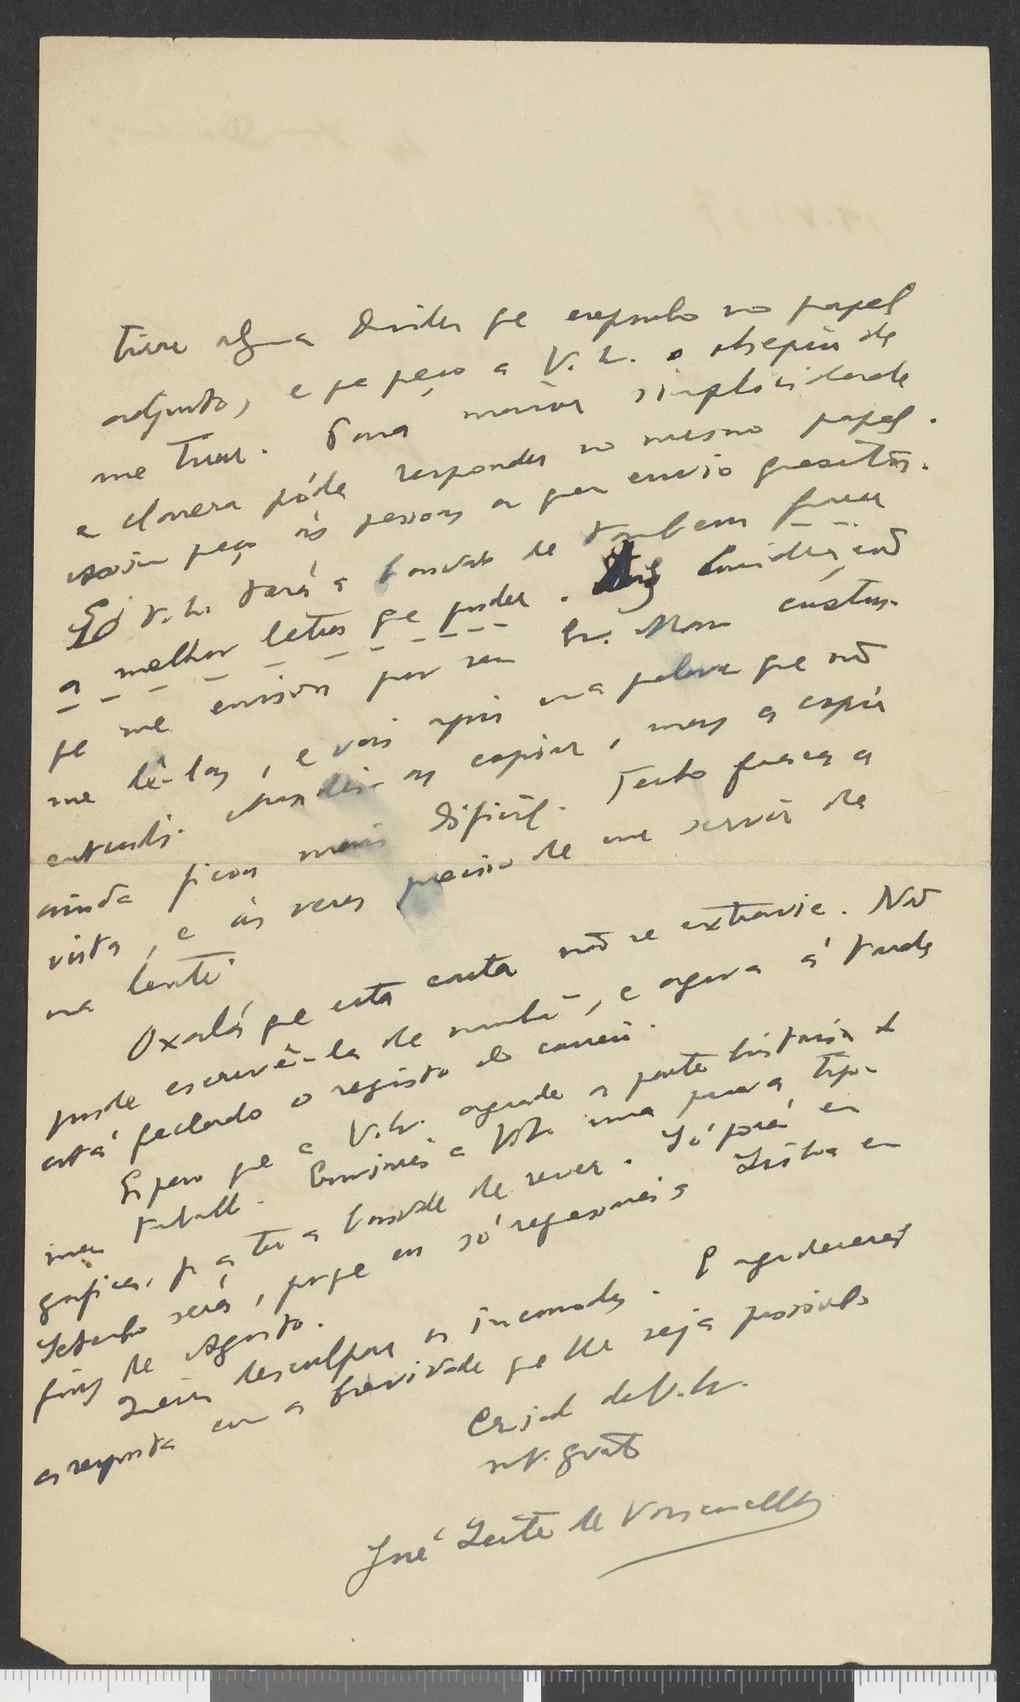 Tive alguma duvida que exponho no papel
adjunto, e que peço a V. Ex. o obsequio de
me tirar. Para maior simplicidade
e clareza póde responder no mesmo papel.
Assim peço ás pessoas a quem envio quesitos.
E V. Ex. terá a bondade de tambem fazer
a melhor letra que puder. duvidas, não
que me enviou por seu Ex. Mano custou-
me lê-las, e vai aqui uma palavra que não
entendi. Mandei-as copiar, mas a copia
ainda ficou mais dificil. Tenho fraca a
vista, e ás vezes preciso de me servir de
uma lente.
Oxalá que esta carta não se extravie. Não
pude escrevê-la de manhã, e agora á tarde
está fechado o registo do correio.
Espero que a V. Ex. agrade a parte historica do
meu trabalho. Enviarei a V. Ex. uma prova typo-
grafica, p. a ter a bondade de rever. Só porá em
Setembro será, porque eu só regressarei a Lisboa em
fins de Agosto.
Queira desculpar os incomodos. E agradecerei
a resposta com a brevidade que lhe seja possivel.
Criad. de V. Ex.
mt. grato
José Leite de Vasconcellos